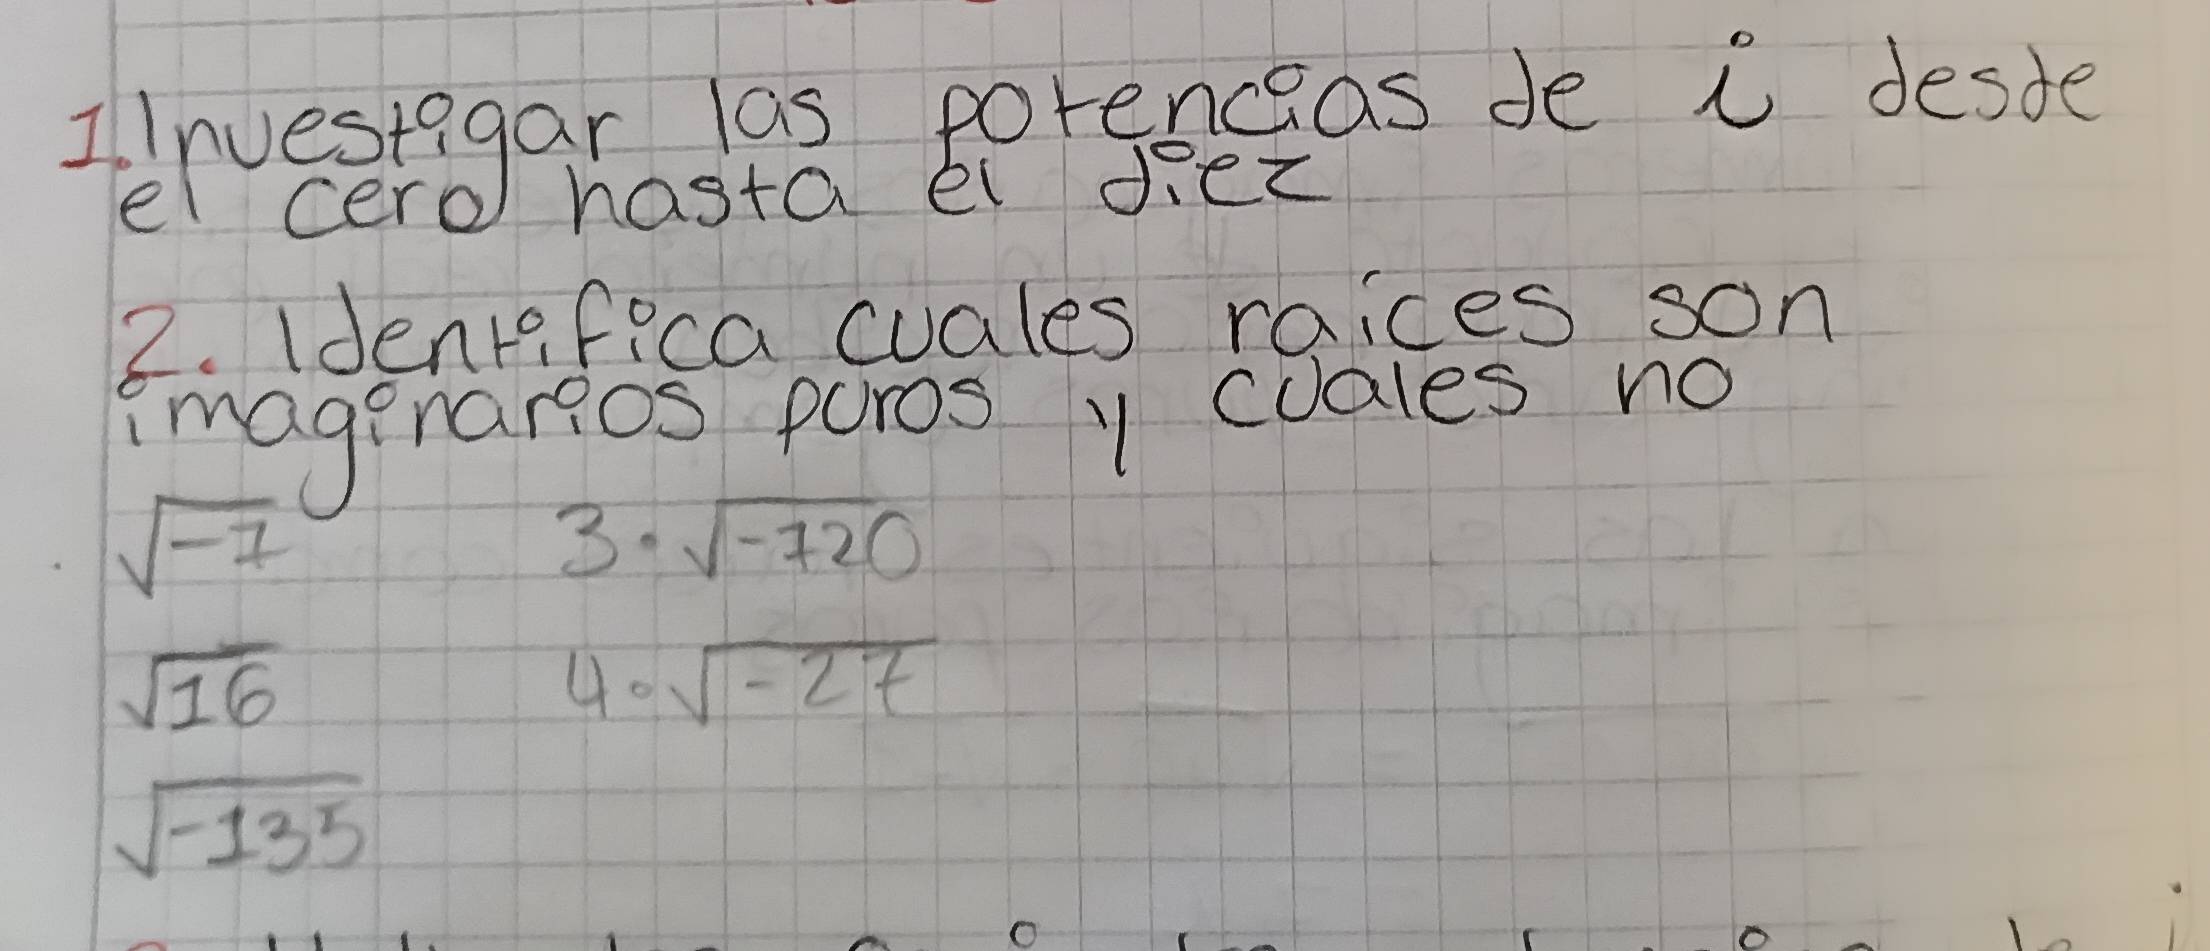 1. Investigar las potencias de i desde
el cero hasta el diez
2. Identifica cuales raices son
imaginarios puros y cuales no
√-7 3·√-720
√16 4·√-27
√-135